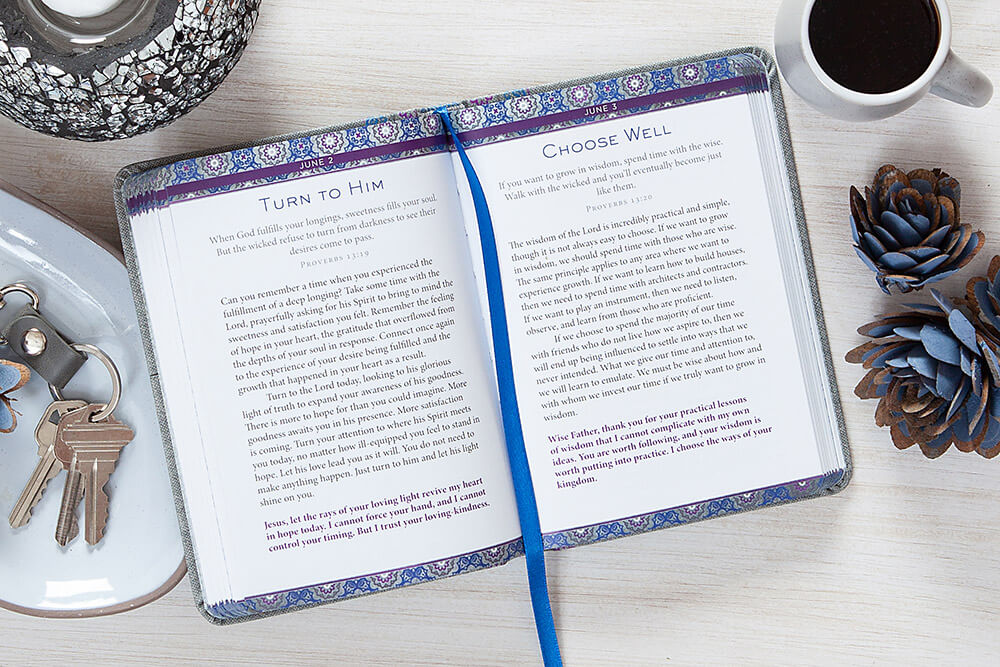 JUNE 2
TURN TO HIM
When God fulfills your longings, sweetness fills your soul.
But the wicked refuse to turn from darkness to see their
desires come to pass.
PROVERBS 13:19
Can you remember a time when you experienced the
fulfillment of a deep longing? Take some time with the
Lord, prayerfully asking for his Spirit to bring to mind the
sweetness and satisfaction you felt. Remember the feeling
of hope in your heart, the gratitude that overflowed from
the depths of your soul in response. Connect once again
to the experience of your desire being fulfilled and the
growth that happened in your heart as a result.
Turn to the Lord today, looking to his glorious
light of truth to expand your awareness of his goodness.
There is more to hope for than you could imagine. More
goodness awaits you in his presence. More satisfaction
is coming. Turn your attention to where his Spirit meets
you today, no matter how ill-equipped you feel to stand in
hope. Let his love lead you as it will. You do not need to
make anything happen. Just turn to him and let his light
shine on you.
Jesus, let the rays of your loving light revive my heart
in hope today. I cannot force your hand, and I cannot
control your timing. But I trust your loving-kindness.
JUNE 3
CHOOSE WELL
If you want to grow in wisdom, spend time with the wise.
Walk with the wicked and you'll eventually become just
like them.
PROVERBS 13:20
The wisdom of the Lord is incredibly practical and simple,
though it is not always easy to choose. If we want to grow
in wisdom, we should spend time with those who are wise.
The same principle applies to any area where we want to
experience growth. If we want to learn how to build houses,
then we need to spend time with architects and contractors.
If we want to play an instrument, then we need to listen,
observe, and learn from those who are proficient.
If we choose to spend the majority of our time
with friends who do not live how we aspire to, then we
will end up being influenced to settle into ways that we
never intended. What we give our time and attention to,
we will learn to emulate. We must be wise about how and
with whom we invest our time if we truly want to grow in
wisdom.
Wise Father, thank you for your practical lessons
of wisdom that I cannot complicate with my own
ideas. You are worth following, and your wisdom is
worth putting into practice. I choose the ways of your
kingdom.